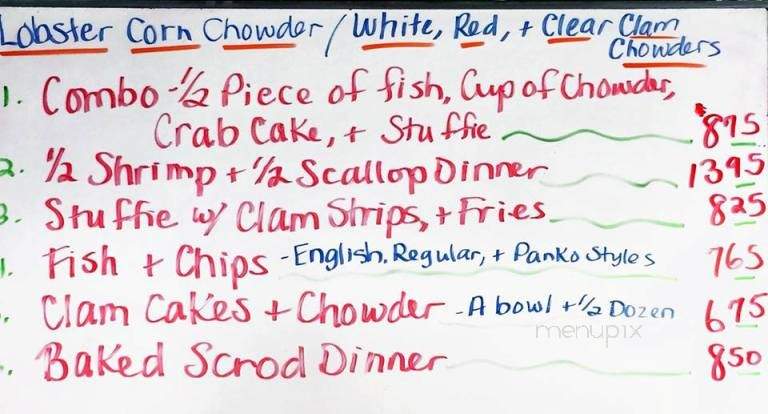 Lobster Corn Chowder / White, Red, + Clear Clam
Chowders
1. Combo - 1/2 Piece of fish, Cup of Chowder,
Crab Cake, + Stuffie 895
2. 1/2 Shrimp + 1/2 Scallop Dinner 1395
3. Stuffie w/ Clam Strips, + Fries 825
Fish + Chips - English, Regular, + Panko Styles 765
Clam Cakes + Chowder - A bowl + 1/2 Dozen 675
menupix
Baked Scrod Dinner 850